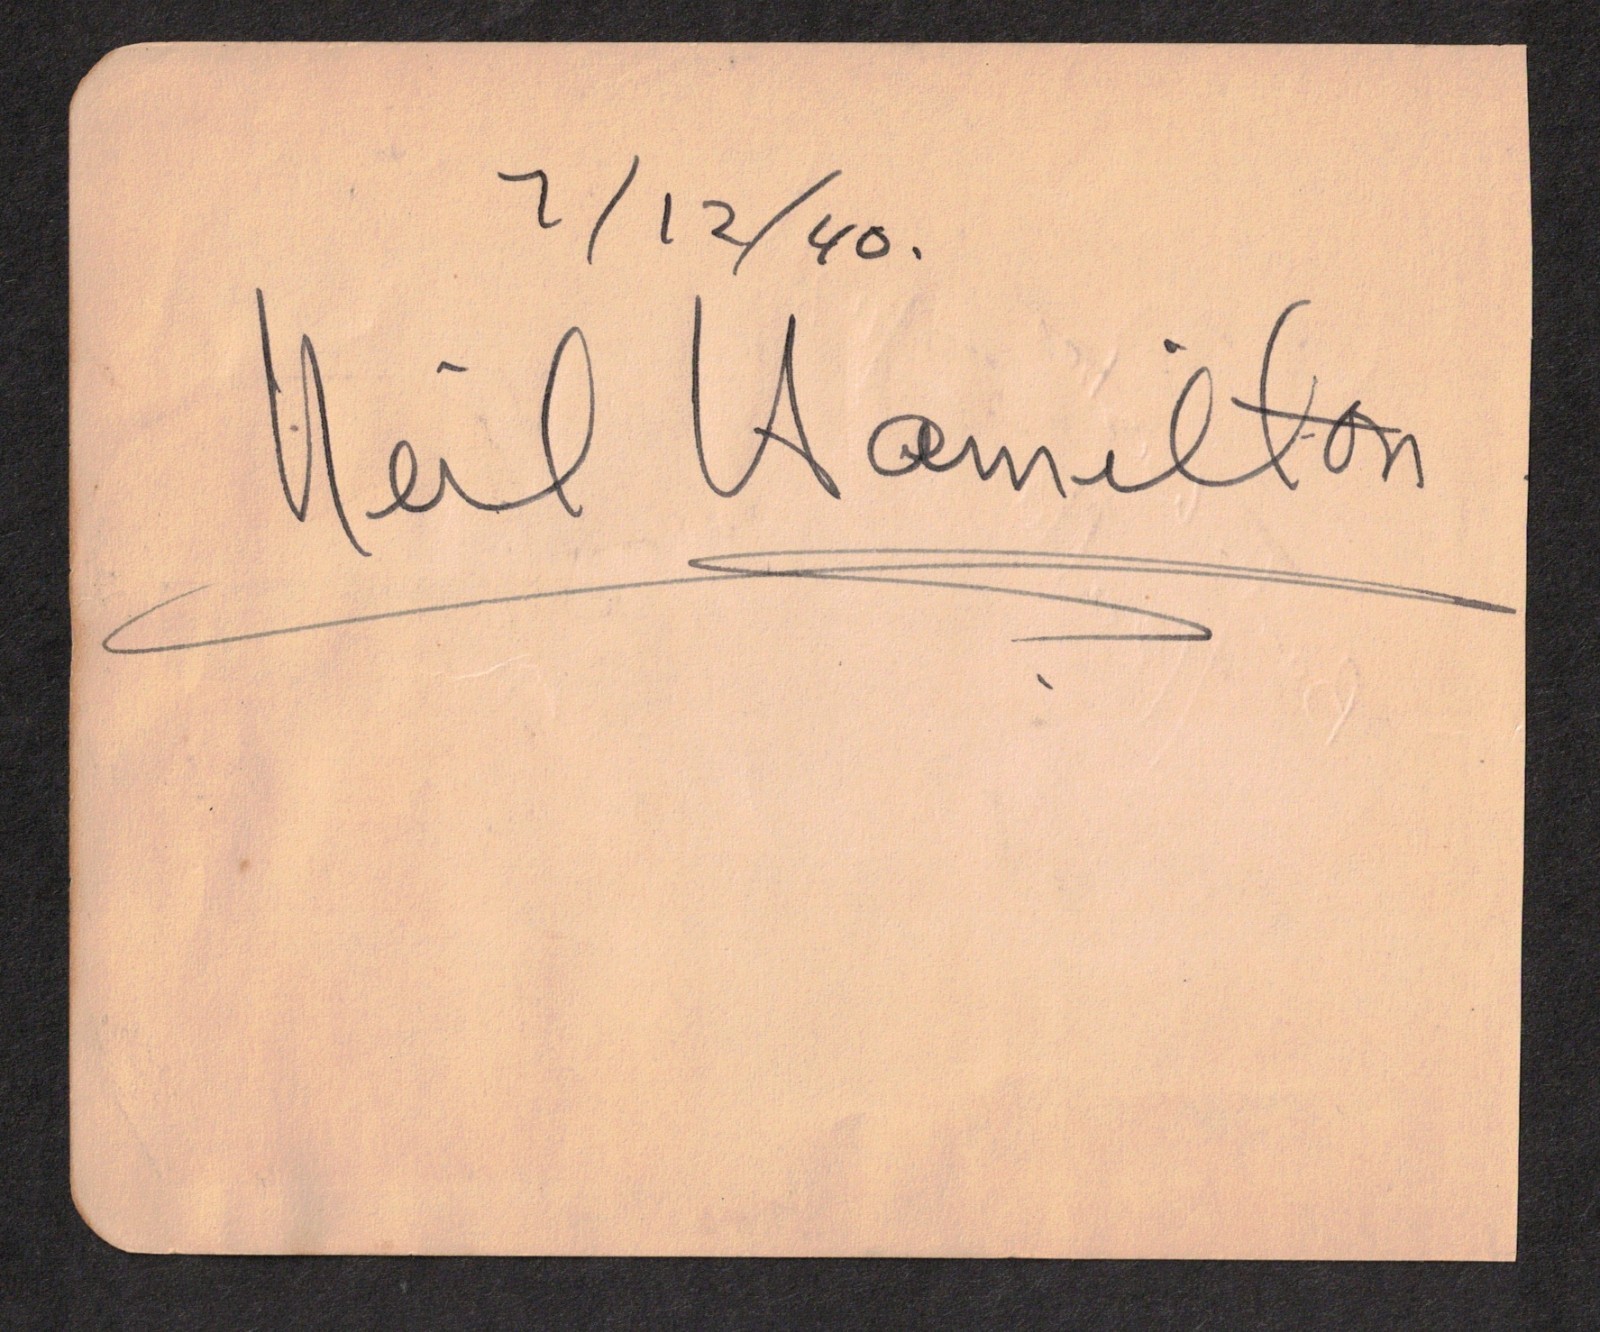 7/12/40.
Neil Hamilton